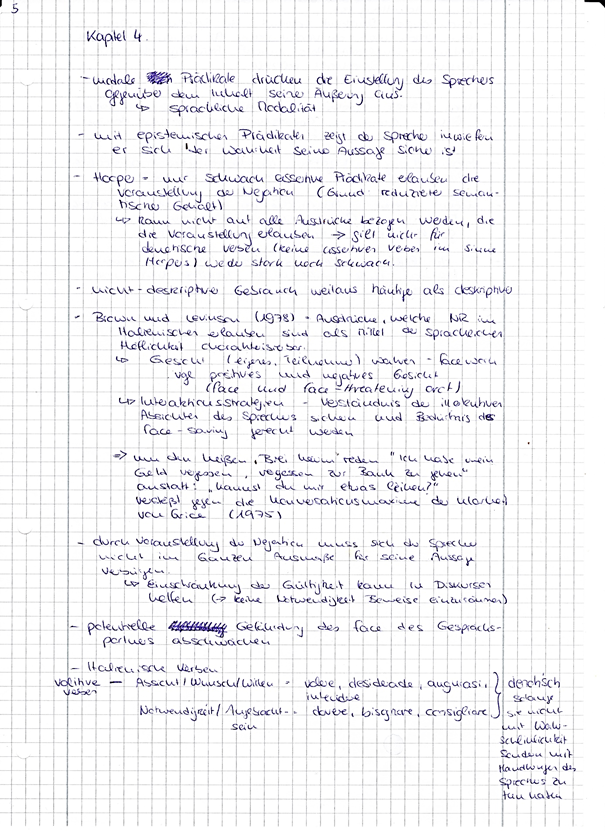 5
Kapitel 4.
- modale Prädikate drücken die Einstellung des Sprechers
gegenüber dem Inhalt seiner Äußerung aus.
↳ sprachliche Modalität
- mit epistemischen Prädikaten zeigt der Sprecher inwiefern
er sich der Wahrheit seine Aussage sicher ist
- Hooper - nur schwach assertive Prädikate erlauben die
Voranstellung der Negation (Grund: reduzierter seman-
tischer Gehalt)
↳ kann nicht auf alle Ausdrücke bezogen werden, die
die Voranstellung erlauben → gilt nicht für
deontische Verben (keine assertiven Verben im Sinne
Hoopers) weder stark noch schwach.
- nicht-deskriptiver Gebrauch weitaus häufiger als deskriptiver
- Brown und Levinson (1978) - Ausdrücke, welche NR im
Italienischen erlauben sind als Mittel der sprachlichen
Höflichkeit charakterisierbar.
↳ Gesicht (eigenes, Teilnehmer) wahren - facework
vgl. positives und negatives Gesicht
(face und face-threatening act)
↳ Interaktionsstrategien - Verständnis der illokutiven
Absichten des Sprechers sichern und Bedürfnis des
face-saving gerecht werden
⇒ um den heißen „Brei herum" reden "Ich habe mein
Geld vergessen, vergessen zur Bank zu gehen"
anstatt: „kannst du mir etwas leihen?"
verstößt gegen die Konversationsmaxime der Klarheit
von Grice (1975)
- durch Voranstellung der Negation muss sich der Sprecher
nicht im Ganzen Ausmaße für seine Aussage
verbürgen.
↳ Einschränkung der Gültigkeit kann in Diskursen
helfen (→ keine Notwendigkeit Beweise einzuräumen)
- potentielle Gefährdung des face des Gesprächs-
partners abschwächen
- Italienische Verben
volitive Verben - Absicht/Wunsch/Willen = volere, desiderare, augurarsi,
intendere
Notwendigkeit/Angebracht-- dovere, bisognare, consigliare
sein
deontisch
solange
sie nicht
mit Wahr-
scheinlichkeit
sondern mit
Handlungen des
Sprechers zu
tun haben